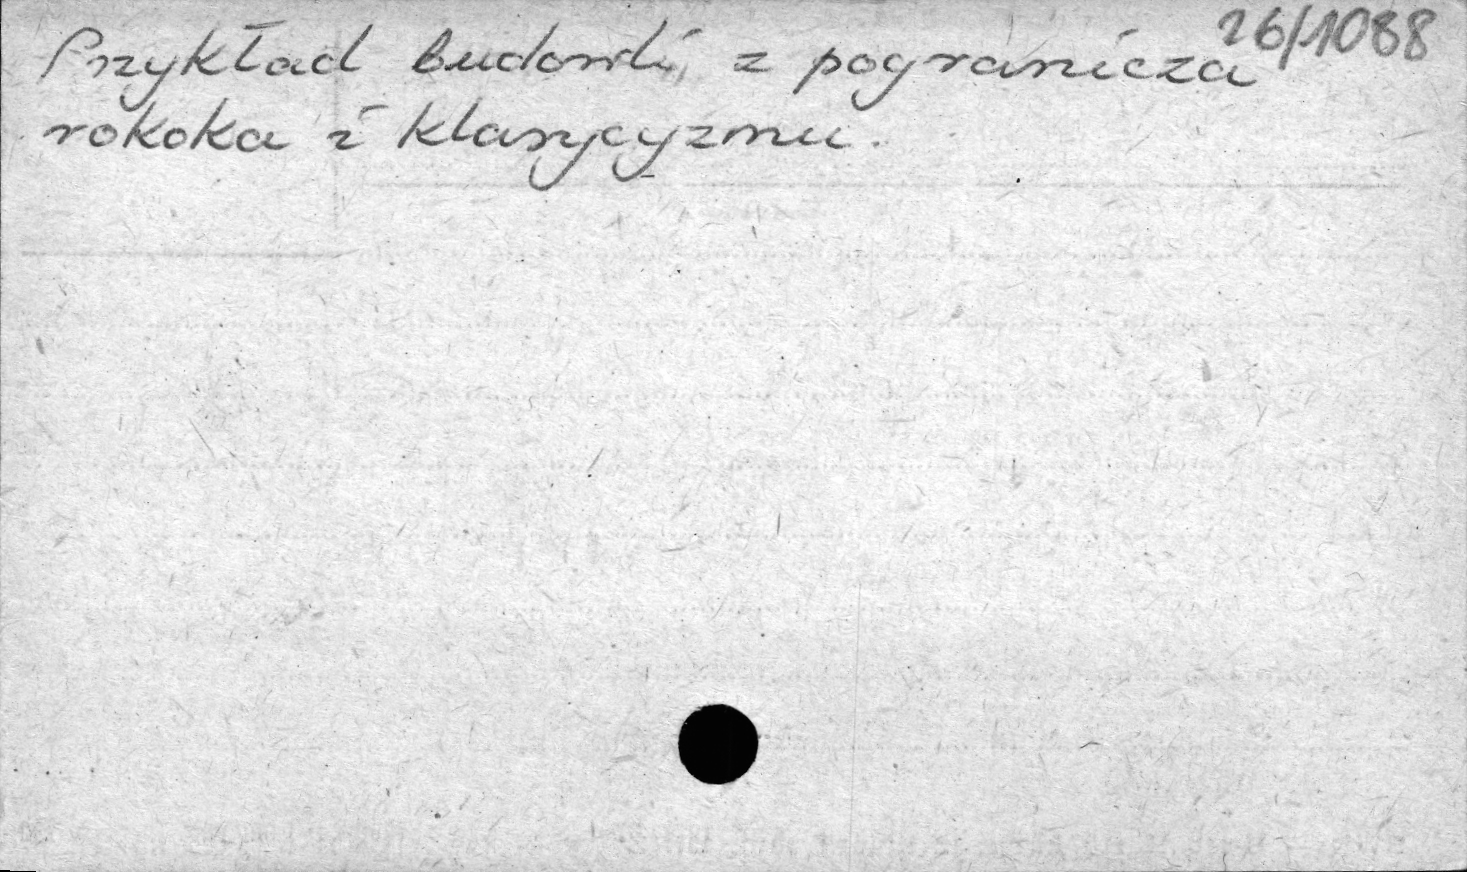 26/1088
Przykład budowli, z pogranicza
rokoka i klasycyzmu.